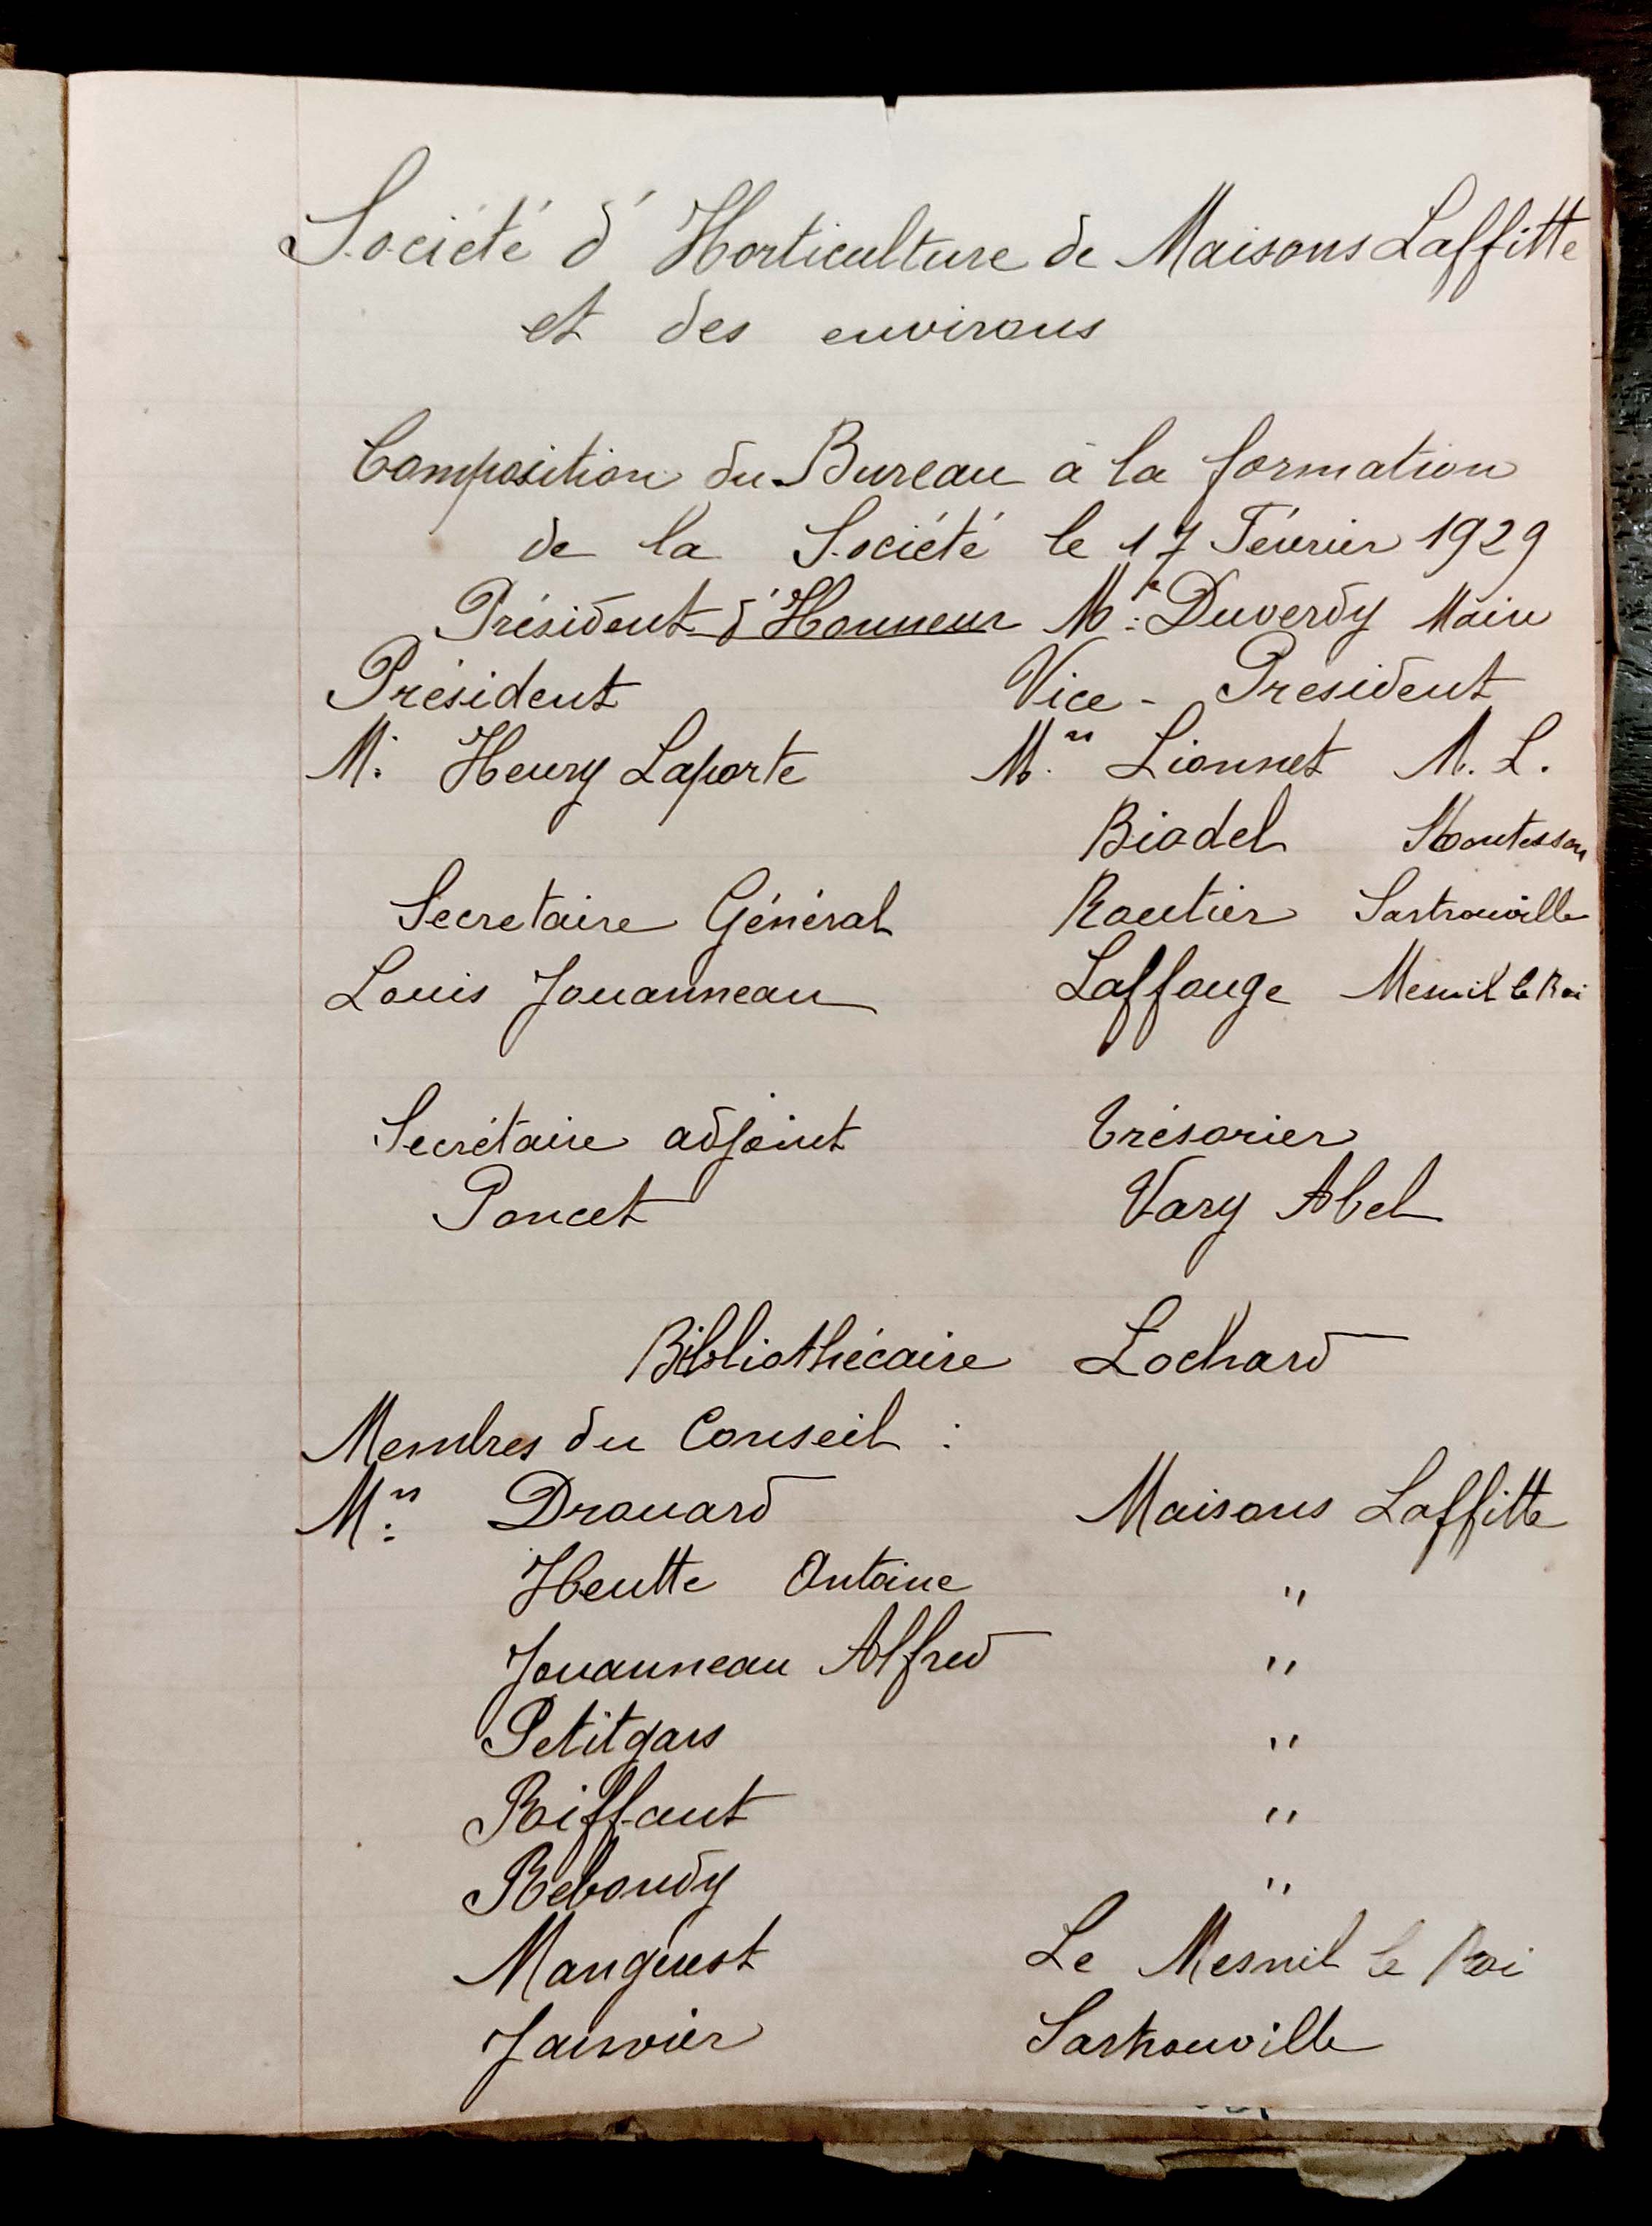 Société d'Horticulture de Maisons Laffitte
et des environs
Composition du Bureau à la formation
de la Société le 17 Février 1929
Président d'Honneur Mr: Duverdy Maire
Président Vice-Président
M. Henry Laporte Mrs Lionnet M. L.
Biadel Montesson
Secretaire Général Routier Sartrouville
Louis Jouanneau Laffouge Mesnil le Roi
Secrétaire adjoint Trésorier
Poncet Vary Abel
Bibliothécaire Lochard
Membres du Conseil :
Mrs Drouard Maisons Laffitte
Heutte Antoine "
Jouanneau Alfred "
Petitgars "
Riffaut "
Reboudy "
Manguest Le Mesnil le Roi
Janvier Sartrouville